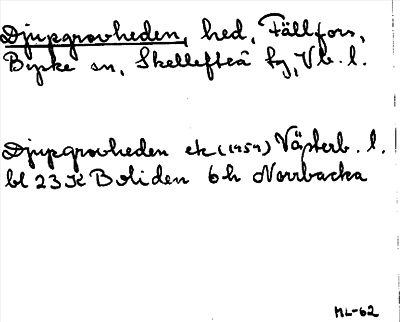 Djupgrovheden, hed, Fällfors,
Byske sn, Skellefteå kg, Vb. l.
Djupgrovheden ek (1954) Västerb. l.
bl 23 K Boliden 6h Norrbacka
ML-62